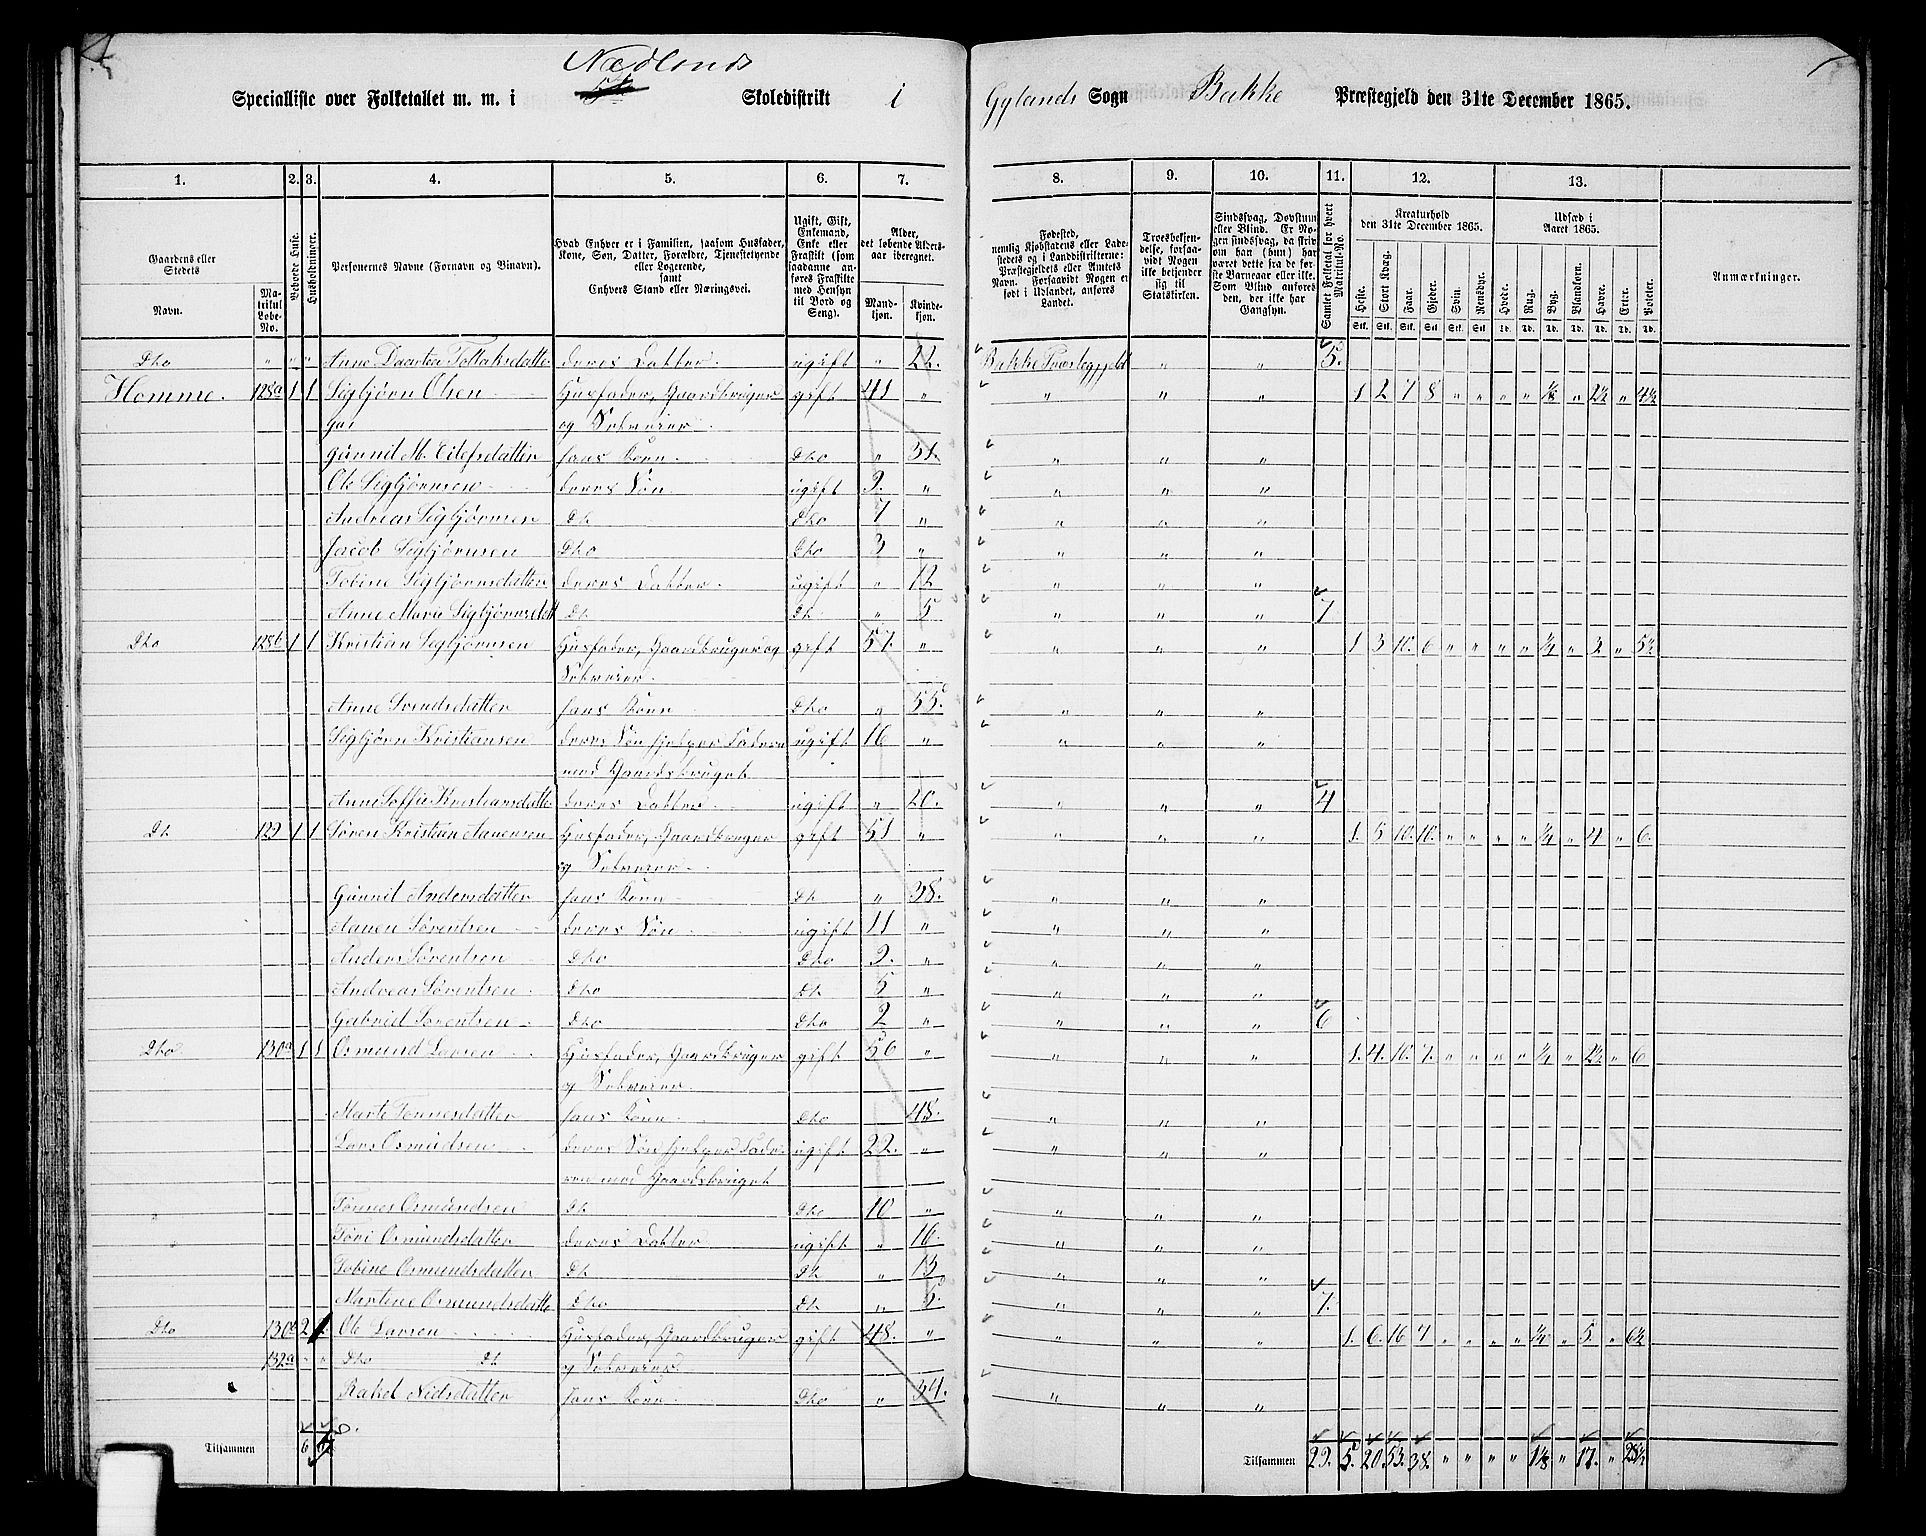 Nedlands
Specialliste over Folketallet m. m. i 5te Skoledistrikt i Gylands Sogn Bakke Præstegjeld den 31te December 1865.
1. 2. 3. 4. 5. 6. 7. 8. 9. 10. 11. 12. 13.
Gaardens eller Stedets
Navn. Matrikul Løbe-No.
Beboede Huse.
Husholdninger.
Personernes Navne (Fornavn og Binavn).
Hvad Enhver er i Familien, saasom Husfader, Kone, Søn, Datter, Forældre, Tjenestetyende eller Logerende,
samt
Enhvers Stand eller Næringsvei.
Ugift, Gift, Enkemand, Enke eller Fraskilt (som saadanne anføres Fraskilte med Hensyn til Bord og Seng).
Alder, det løbende Aldersaar iberegnet.
Mandkjøn. Kvindekjøn.
Fødested,
nemlig Kjøbstadens eller Ladestedets og i Landdistrikterne: Præstegjeldets eller Amtets Navn. Forsaavidt Nogen er født i Udlandet, anføres Landet.
Troesbekjendelse, forsaavidt Nogen ikke bekjender sig til Statskirken.
Sindssvag, Døvstum eller Blind. Er Nogen sindssvag, da skriv om han (hun) har været dette fra de første Barneaar eller ikke. Som Blind anføres den, der ikke har Gangsyn.
Samlet Folketal for hvert Matrikul-No.
Kreaturhold den 31te December 1865.
Heste. Stort Kvæg. Faar. Gjeder. Svin. Rensdyr.
Udsæd i Aaret 1865.
Hvede. Rug. Byg. Blandkorn. Havre. Erter. Poteter.
Anmærkninger.
Dho " " " Anne Daartea Tollaksdatter deres Datter ugift " 22. Bakke Præstegjeld " " 5.
Homme. 128a 1 1 Sigbjørn Olsen Husfader, Gaardbruger gift 41 " " " " 1 2 7 8 " " " " 1/8 " 2½ " 4½
og Selveier
Gunnild M. Eilefsdatter hans Kone Dho " 31. " " "
Ole Sigbjørnsen deres Søn ugift 9. " " " "
Andreas Sigbjørnsen Dh Dho 7 " " " "
Jacob Sigbjørnsen Dho Dho 3 " " " "
Tobine Sigbjørnsdatter deres Datter ugift " 12 " " "
Anne Marie Sigbjørnsdatt Dh Dh " 5 " " " 7
Dho 128b 1 1 Kristian Sigbjørnsen Husfader, Gaardbruger og gift 57. " " " " 1 3 10. 6 " " " " ¼ " 3 " 5½
Selveier
Anne Svendsdatter hans Kone Dho " 55. " " "
Sigbjørn Kristiansen deres Søn hjelper Faderen ugift 16 " " " "
med Gaardsbruget
Anne Soffie Kristiansdatter deres Datter ugift " 20. " " " 4
Dh 129 1 1 Søren Kristian Aanensen Husfader, Gaardbruger gift 51 " " " " 1. 5 10. 10. " " " " ¼ " 4 " 6.
og Selveier
Gunnil Andersdatter hans Kone Dh " 38. " " "
Aanen Sørensen deres Søn ugift 11 " " " "
Anders Sørentsen Dho Dho 9. " " " "
Andreas Sørentsen Dho Dh 5 " " " "
Gabriel Sørentsen Dho Dho 2 " " " " 6
Dho 130a 1 1 Osmund Larsen Husfader, Gaardbruger gift 56 " " " " 1. 4. 10. 7. " " " " ¼ " 2½ " 6
og Selveier
Marte Tønnesdatter hans Kone Dho 48. " " "
Lars Osmudsen deres Søn hjelper Fade- ugift 22. " " " "
ren med Gaardsbruget
Tønnes Osmundsen Dh Dho 10 " " " "
Tøri Osmundsdatter deres Datter ugift " 16. " " "
Tobine Osmundsdatter Dh Dh " 13 " " "
Martine Osmundsdatte Dho Dh " 5. " " " 7.
Dho 130b 2 1 Ole Larsen Husfader, Gaardbruger gift 48. " " " " 1. 6. 16 7 " " " " ¼ " 5. " 6½
132a " " Dho Dh og Selveier
Rakel Nielsdatter hans Kone Dho " 34. " " "
Tilsammen 6
Tilsammen 29. 5. 20. 53. 38. " " " " 1⅛ " 17. " 28½